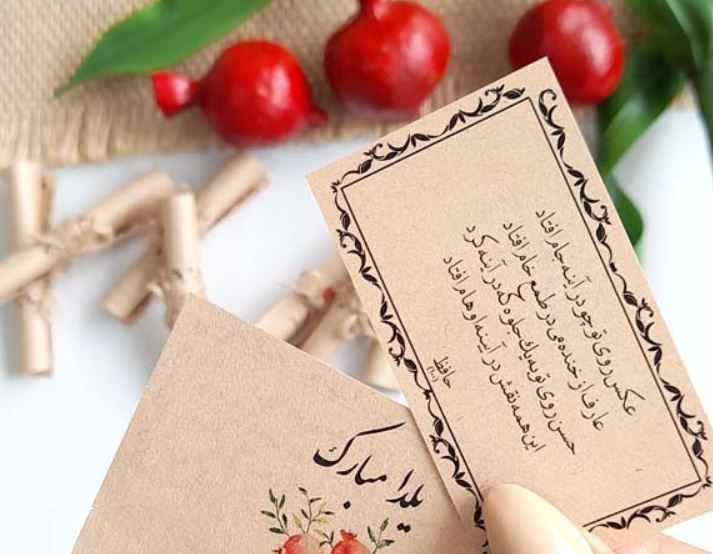 عکس روی تو چو در آینه جام افتاد
عارف از خنده می در طمع خام افتاد
حسن روی تو به یک جلوه که در آینه کرد
این همه نقش در آیینه اوهام افتاد
حافظ
یلدا مبارک